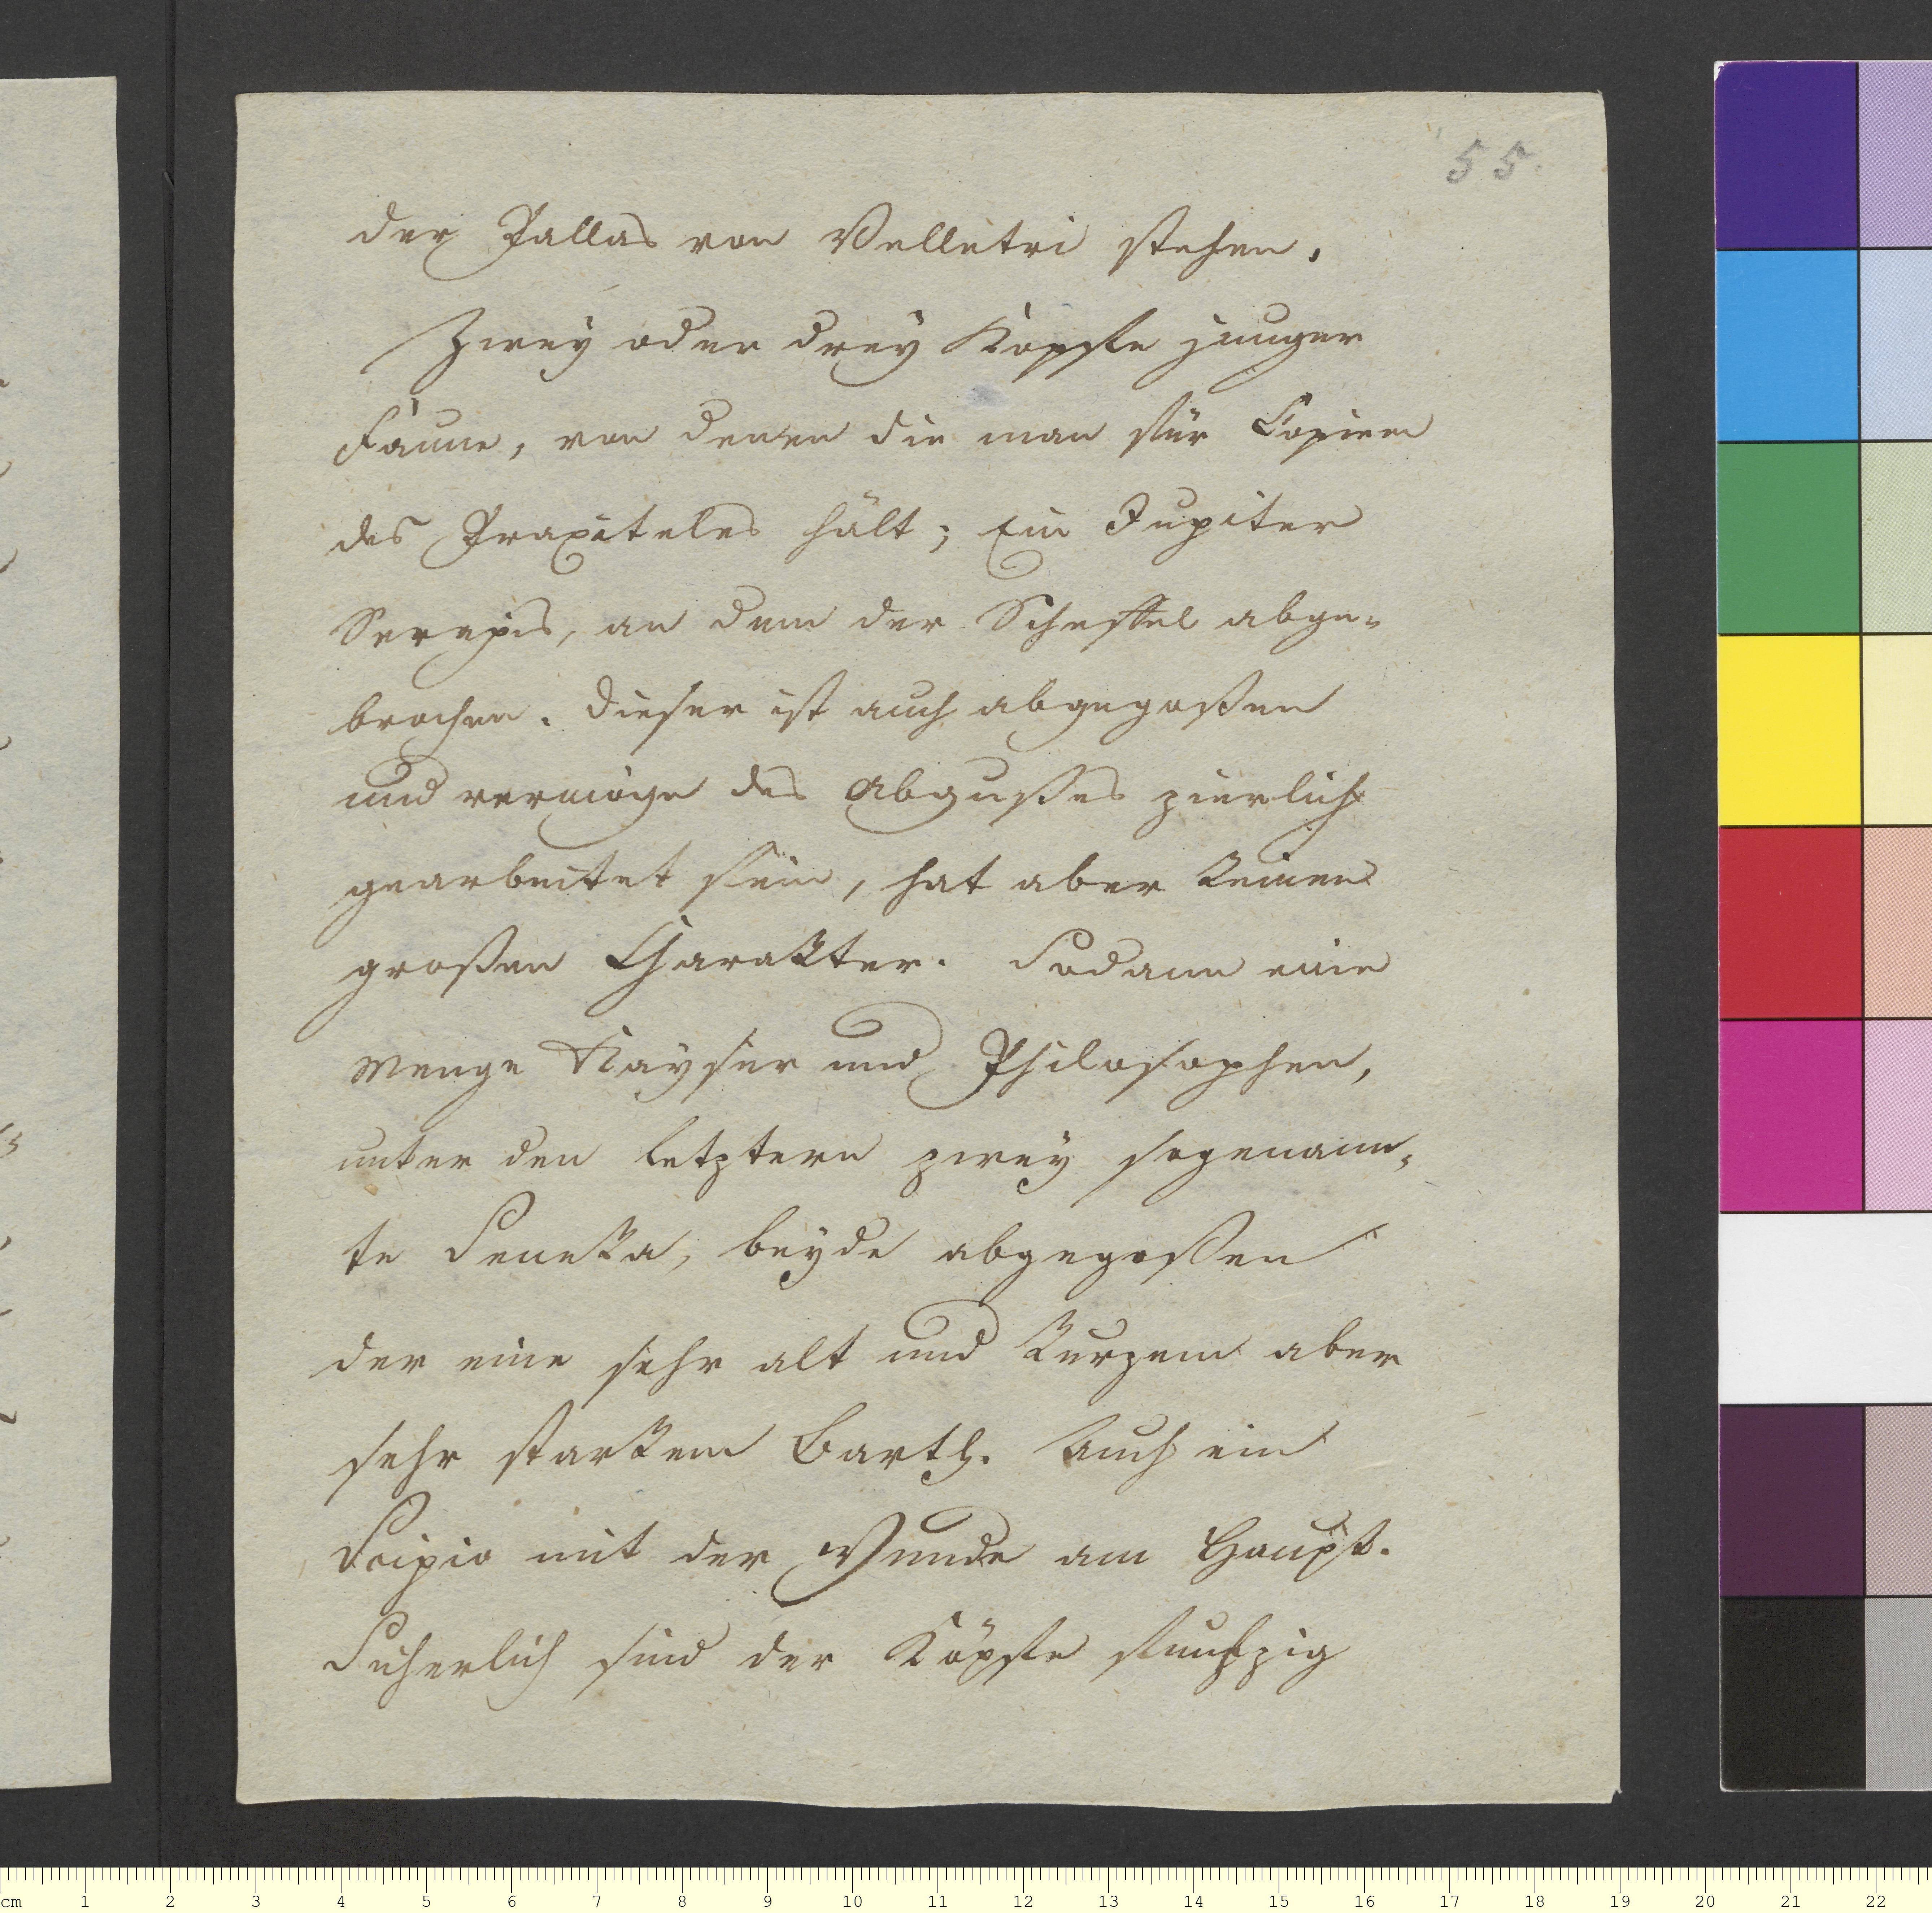 55.
der Pallas von Velletri stehen.
Zwey oder drey Köpfe junger
Faune, von denen die man für Copien
des Praxiteles hält; Ein Jupiter
Serapis, an dem der Scheffel abge=
brochen. Dieser ist auch abgegoßen
und vermöge des Abgußes zierlich
gearbeitet sein, hat aber keinen
großen Charakter. Sodann eine
Menge Kayser und Philosophen,
unter den letztern zwey sogenann=
te Seneka, beyde abgegoßen
der eine sehr alt und kurzem aber
sehr starkem Barth. Auch ein
Scipio mit der Wunde am Haupt.
Sicherlich sind der Köpfe funfzig
cm 1 2 3 4 5 6 7 8 9 10 11 12 13 14 15 16 17 18 19 20 21 22